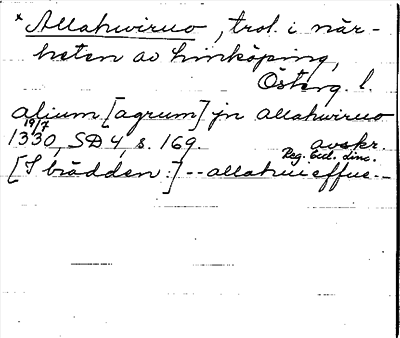 * Allahwiruo, trol. i när-
heten av Linköping,
Österg. l.
alium [agrum] jn allahwiruo
19/7
1330, SD 4, s. 169. avskr.
Reg. Eccl. Linc.
[I brädden:] -- allahui effue --